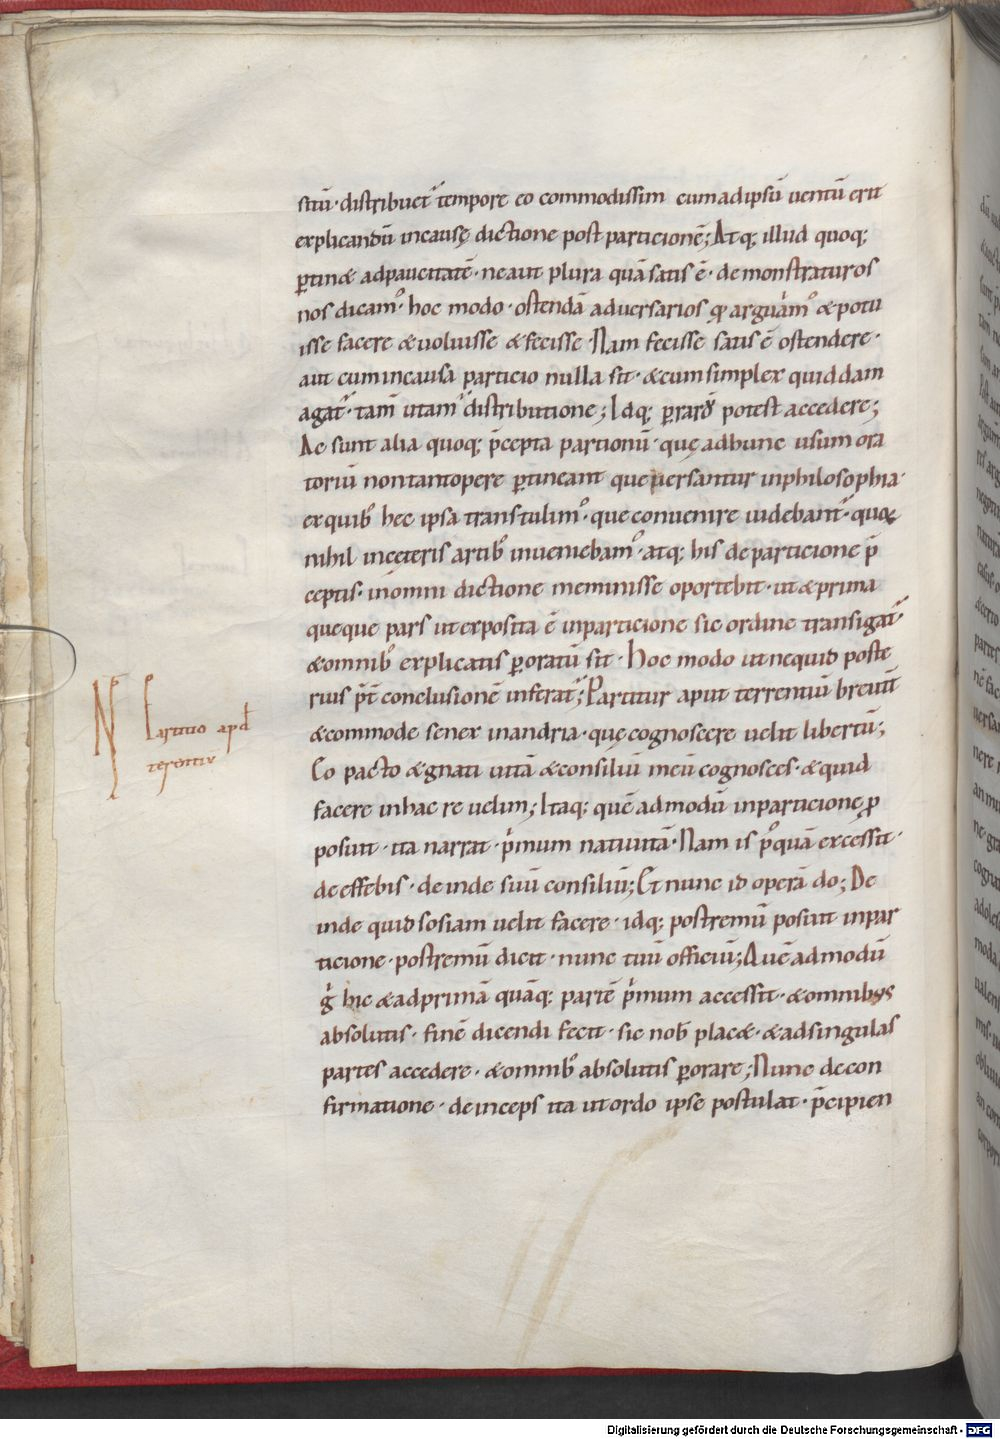 sitū· distribuet᷒ tempore eo commodissim cum adipsū uentū erit
explicandū incausę dictione post particionē; Atq; illud quoq;
ꝑtinæ adpaucitatē· neaut plura quā satis ē· demonstraturos
nos dicam᷒· hoc modo· ostendā aduersarios qđ arguim᷒ & potu
isse facere & uoluisse & fecisse· Nam fecisse satis ē ostendere·
aut cum incausa particio nulla sit· & cum simplex quiddam
agat᷒· tam̄ utam᷒ distributione; Idq; ꝑraro potest accedere;
Ac sunt alia quoq; p̄cepta partionū· quę adhunc usum ora
toriū nontantopere ꝑtineant que uersantur inphilosophia·
ex quib᷒ hec ipsa transtulim᷒· que conuenire uidebant᷒· quoꝝ
nihil incęteris artib᷒ inueniebam᷒· atq; his de particione p̄
ceptis· inomni dictione meminisse oportebit· ut & prima
queque pars ut exposita ē inparticione sic ordine transigat᷒·
& omnib᷒ explicatis ꝑoratū sit· hoc modo ut nequid poste
rius p̄t̄ conclusionē inferat᷒; Partitur aput terrentiū breuit̄
& commode senex inandria· quę cognoscere uelit libertū;
Eo pacto & gnati uitā & consiliū meū cognosces· & quid
facere inhac re uelim; Itaq; quē admodū inparticione ꝓ
posuit· ita narrat· p̄mum natiuitā· Nam is p᷒quā excessit·
de effebis· deinde suū consiliū; Et nunc id operā do; De
inde quid sosiam uelit facere· idq; postremū posuit inpar
ticione· postremū dicit· nunc tuū officiū; Quē admodū
g̊ hic & adprimā quāq; partē p̄mum accessit· & omnibus
absolutis· finē dicendi fecit· sic nob̄ placæ· & adsingulas
partes accedere· & omnib᷒ absolutis ꝑorare; Nunc de con
firmatione· deinceps ita ut ordo ipse postulat· p̄cipien
N Partitio apd
terentiū
Digitalisierung gefördert durch die Deutsche Forschungsgemeinschaft - DFG